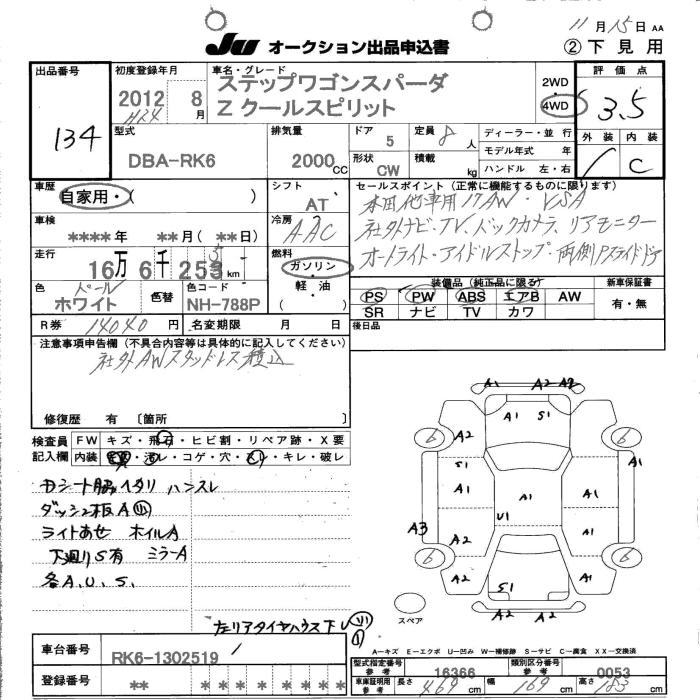 11月15日 AA
JU オークション出品申込書
②下見用
出品番号
134
初度登録年月
2012 8月
H24
車名・グレード
ステップワゴンスパーダ
Z クールスピリット
2WD
・
4WD
評価点
3.5
外装 内装
C
型式
DBA-RK6
排気量
2000CC
ドア 5
定員 8人
形状 CW
積載 kg
ディーラー・並行
モデル年式 年
ハンドル 左・右
車歴
自家用・( )
シフト
AT
セールスポイント(正常に機能するものに限ります)
本田他車用17AW・VSA
社外ナビ・TV、バックカメラ、リアモニター
オートライト・アイドルストップ・両側Pスライドドア
車検
****年 **月(**日)
冷房
AAC
走行
16万6千253km
燃料
ガソリン
軽油
( )
装備品(純正品に限る)
PS PW ABS エアB AW
SR ナビ TV カワ
新車保証書
有・無
色
パール
ホワイト
色替
色コード
NH-788P
R券 14040円
名変期限 月 日
後日品
注意事項申告欄(不具合内容等は具体的に記入してください)
社外AWスタッドレス積込
修復歴 有 〔箇所 〕
検査員
記入欄
FW キズ・飛石・ヒビ割・リペア跡・X要
内装 ・汚レ・コゲ・穴・スレ・キレ・破レ
Dシート脇ヘタリ ハンスレ
ダッシュ板A小
ライトあせ ホイルA
下廻りS有 ミラーA
各A.U.S.
左リアタイヤハウス下
A1 A2 A2
A1 S1
6 A2 A1 6
S1
A1 A1 A1
U1
A3 A2 A2
6 A2 A1 6
S1
A2 A2
スペア
A―キズ E―エクボ U―凹み W―補修跡 S―サビ C―腐食 XX―交換済
車台番号
RK6-1302519
登録番号
** * * * * * * * *
型式指定番号
参考
16366
類別区分番号
参考
0053
車庫証明用
参考
長さ 469cm
幅 169cm
高さ 183cm